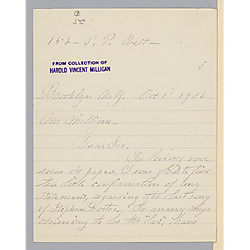 FROM COLLECTION OF
HAROLD VINCENT MILLIGAN
Brooklyn N.Y. Oct 1st 1916
Mr. Milligan
Dear Sir.
On looking over
some old papers, I was glad to find
this little confirmation of my
statement, regarding the last song
of Stephen Foster, So many songs
claiming to be the "last", have